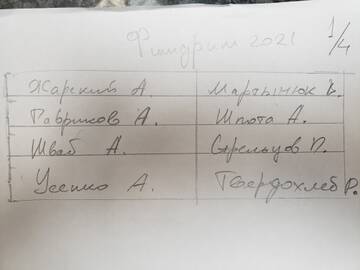 Финдрим 2021
1/4
Жарский А. Мартынюк В.
Гавриков А. Шпота А.
Шваб А. Стрельцов П.
Усенко А. Твердохлеб Р.